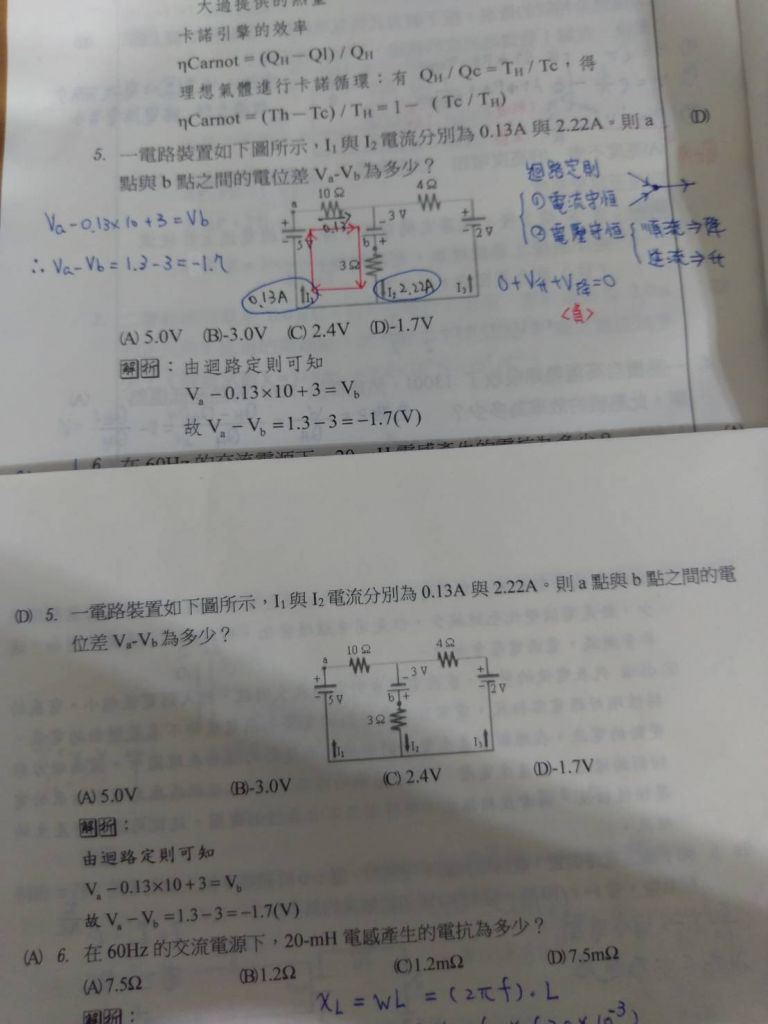 大過提供的熱量
卡諾引擎的效率
ηCarnot = (QH－Ql) / QH
理想氣體進行卡諾循環：有 QH / Qc = TH / Tc，得
ηCarnot = (Th－Tc) / TH = 1－ ( Tc / TH)
5. 一電路裝置如下圖所示，I1 與 I2 電流分別為 0.13A 與 2.22A。則 a (D)
點與 b 點之間的電位差 Va-Vb 為多少？
迴路定則
①電流守恒
②電壓守恒
順流⇒降
逆流⇒升
0+V升+V降=0
<負>
Va-0.13×10+3=Vb
∴ Va-Vb=1.3-3=-1.7
a
10Ω
4Ω
0.13
+
-
5V
-
3V
b
+
+
-
2V
3Ω
0.13A
I1
I2
2.22A
I3
(A) 5.0V (B)-3.0V (C) 2.4V (D)-1.7V
解析：由迴路定則可知
Va－0.13×10＋3＝Vb
故 Va－Vb＝1.3－3＝－1.7(V)
6. 在 60Hz 的交流電源下，20-mH 電感產生的電抗為多少？
(D) 5. 一電路裝置如下圖所示，I1 與 I2 電流分別為 0.13A 與 2.22A。則 a 點與 b 點之間的電
位差 Va-Vb 為多少？
a
10Ω
4Ω
+
-
5V
-
3V
b
+
+
-
2V
3Ω
I1
I2
I3
(A) 5.0V (B)-3.0V (C) 2.4V (D)-1.7V
解析：
由迴路定則可知
Va－0.13×10＋3＝Vb
故 Va－Vb＝1.3－3＝－1.7(V)
(A) 6. 在 60Hz 的交流電源下，20-mH 電感產生的電抗為多少？
(A) 7.5Ω (B) 1.2Ω (C) 1.2mΩ (D) 7.5mΩ
解析：
XL = WL = (2πf).L